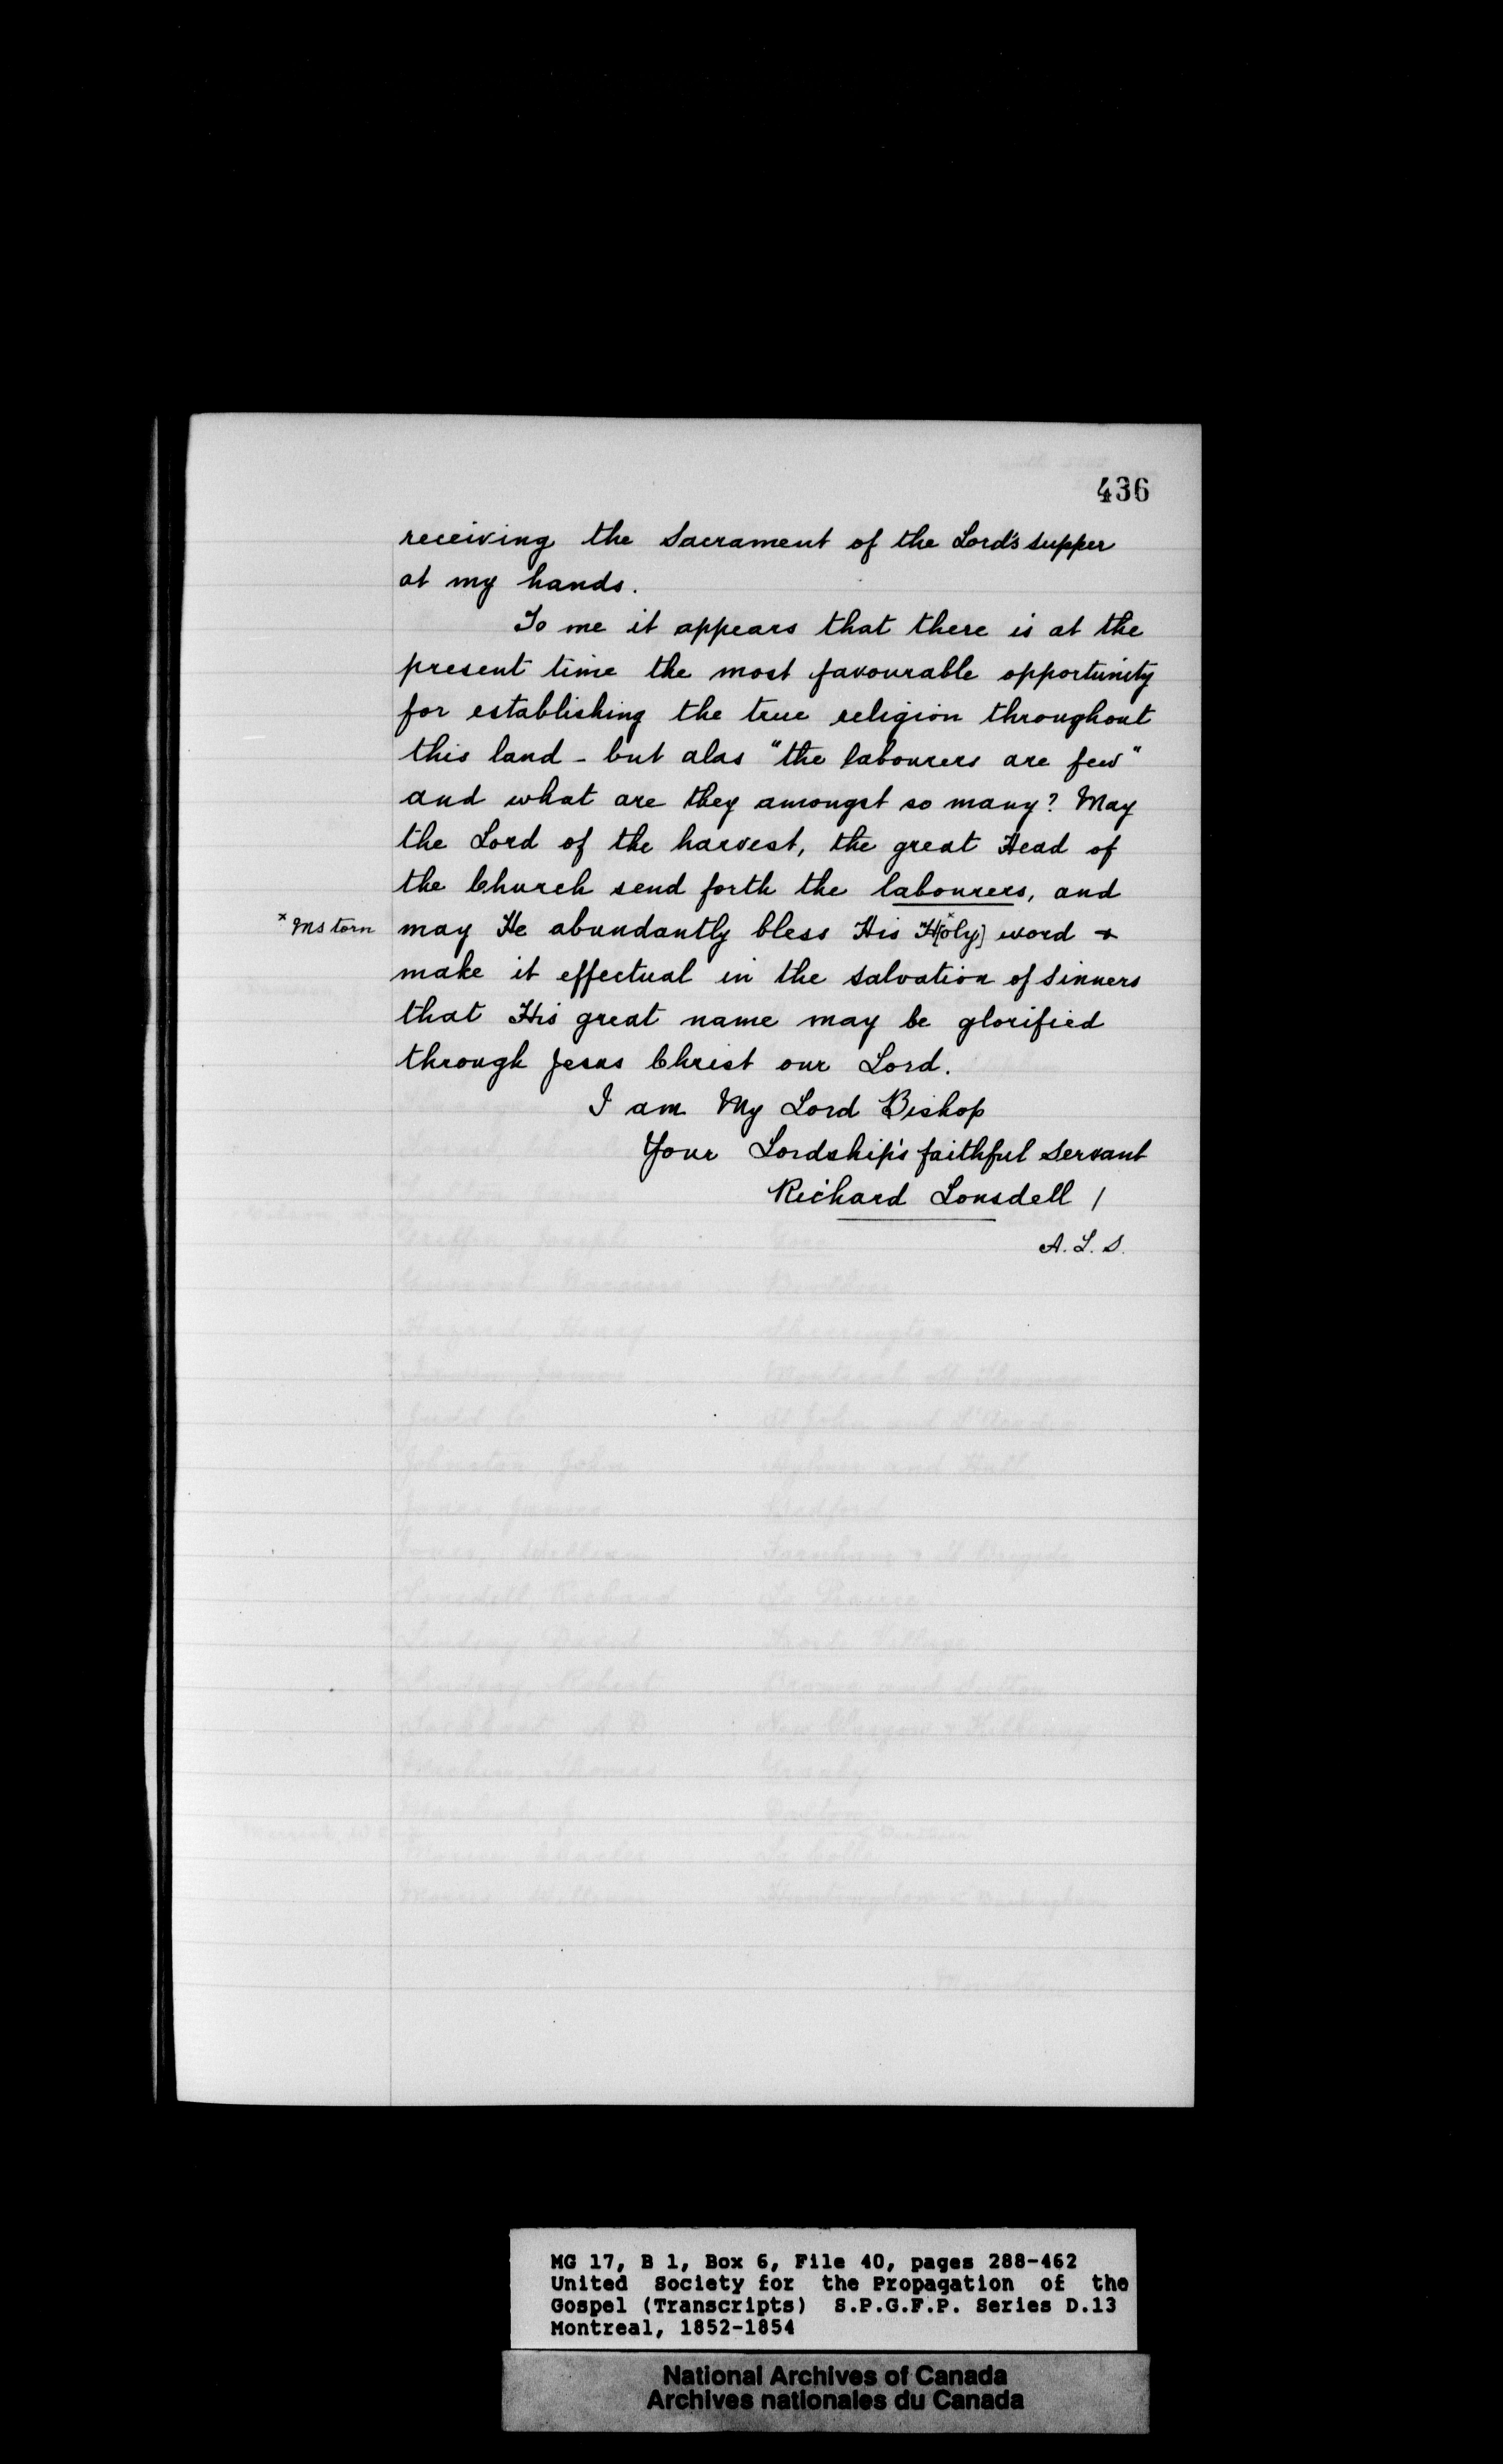 436
receiving the Sacrament of the Lord's supper
at my hands.
To me it appears that there is at the
present time the most favourable opportunity
for establishing the true religion throughout
this land - but alas "the labourers are few"
and what are they amongst so many? May
the Lord of the harvest, the great Head of
the Church send forth the labourers, and
* Ms torn
may He abundantly bless His H[*oly] word &
make it effectual in the salvation of sinners
that His great name may be glorified
through Jesus Christ our Lord.
I am My Lord Bishop
Your Lordship's faithful servant
Richard Lonsdell /
A. L. S.
MG 17, B 1, Box 6, File 40, pages 288-462
United Society for the Propagation of the
Gospel (Transcripts) S.P.G.F.P. Series D.13
Montreal, 1852-1854
National Archives of Canada
Archives nationales du Canada